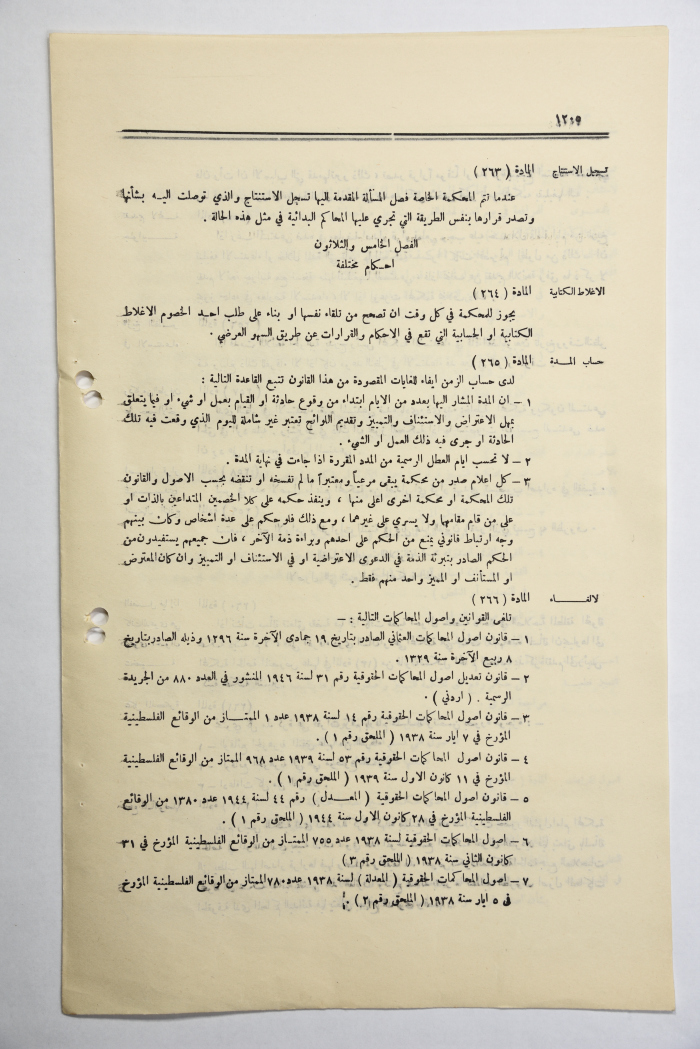 ١٢٠٥
تسجل الاستنتاج المادة ( ٢٦٣ )
عندما تتم المحكمة الخاصة فصل المسألة المقدمة اليها تسجل الاستنتاج والذي توصلت اليه بشأنها
وتصدر قرارها بنفس الطريقة التي تجري عليها المحاكم البدائية في مثل هذه الحالة .
الفصل الخامس والثلاثون
احكام مختلفة
الاغلاط الكتابية المادة ( ٢٦٤ )
يجوز للمحكمة في كل وقت ان تصحح من تلقاء نفسها او بناء على طلب احد الخصوم الاغلاط
الكتابية او الحسابية التي تقع في الاحكام والقرارات عن طريق السهو العرضي .
حساب المدة المادة ( ٢٦٥ )
لدى حساب الزمن ايفاء للغايات المقصودة من هذا القانون تتبع القاعدة التالية :
١ – ان المدة المشار اليها بعدد من الايام ابتداء من وقوع حادثة او القيام بعمل أو شيء او فيما يتعلق
بمهل الاعتراض والاستئناف والتمييز وتقديم اللوائح تعتبر غير شاملة لليوم الذي وقعت فيه تلك
الحادثة او جرى فيه ذلك العمل او الشيء .
٢ – لا تحسب ايام العطل الرسمية من المدد المقررة اذا جاءت في نهاية المدة .
٣ – كل اعلام صدر من محكمة يبقى مرعياً ومعتبراً ما لم تفسخه او تنقضه بحسب الاصول والقانون
تلك المحكمة او محكمة اخرى اعلى منها ، وينفذ حكمه على كلا الخصمين المتداعين بالذات او
على من قام مقامها ولا يسري على غيرهما ، ومع ذلك فلو حكم على عدة اشخاص وكان بينهم
وجه ارتباط قانوني يمنع من الحكم على احدهم وبراءة ذمة الآخر ، فان جميعهم يستفيدون من
الحكم الصادر بتبرئة الذمة في الدعوى الاعتراضية او في الاستئناف او التمييز وان كان المعترض
او المستأنف او المميز واحد منهم فقط .
لالغاء المادة ( ٢٦٦ )
تلغى القوانين واصول المحاكمات التالية : –
١ – قانون اصول المحاكمات العثماني الصادر بتاريخ ١٩ جمادى الآخرة سنة ١٢٩٦ وذيله الصادر بتاريخ
٨ ربيع الآخرة سنة ١٣٢٩ .
٢ – قانون تعديل اصول المحاكمات الحقوقية رقم ٣١ لسنة ١٩٤٦ المنشور في العدد ٨٨٠ من الجريدة
الرسمية . ( اردني ) .
٣ – قانون اصول المحاكمات الحقوقية رقم ١٤ لسنة ١٩٣٨ عدد ١ الممتاز من الوقائع الفلسطينية
المؤرخ في ٧ ايار سنة ١٩٣٨ ( الملحق رقم ١ ) .
٤ – قانون اصول المحاكمات الحقوقية رقم ٥٣ لسنة ١٩٣٩ عدد ٩٦٨ الممتاز من الوقائع الفلسطينية
المؤرخ في ١١ كانون الاول سنة ١٩٣٩ ( الملحق رقم ١ ) .
٥ – قانون اصول المحاكمات الحقوقية ( المعدل ) رقم ٤٤ لسنة ١٩٤٤ عدد ١٣٨٠ من الوقائع
الفلسطينية المؤرخ في ٢٨ كانون الاول سنة ١٩٤٤ ( الملحق رقم ١ ) .
٦ – اصول المحاكمات الحقوقية لسنة ١٩٣٨ عدد ٧٥٥ الممتاز من الوقائع الفلسطينية المؤرخ في ٣١
كانون الثاني سنة ١٩٣٨ ( الملحق رقم ٣ )
٧ – اصول المحاكمات الحقوقية ( المعدلة ) لسنة ١٩٣٨ عدد ٧٨٠ الممتاز من الوقائع الفلسطينية المؤرخ
في ٥ ايار سنة ١٩٣٨ ( الملحق رقم ٢ ) .